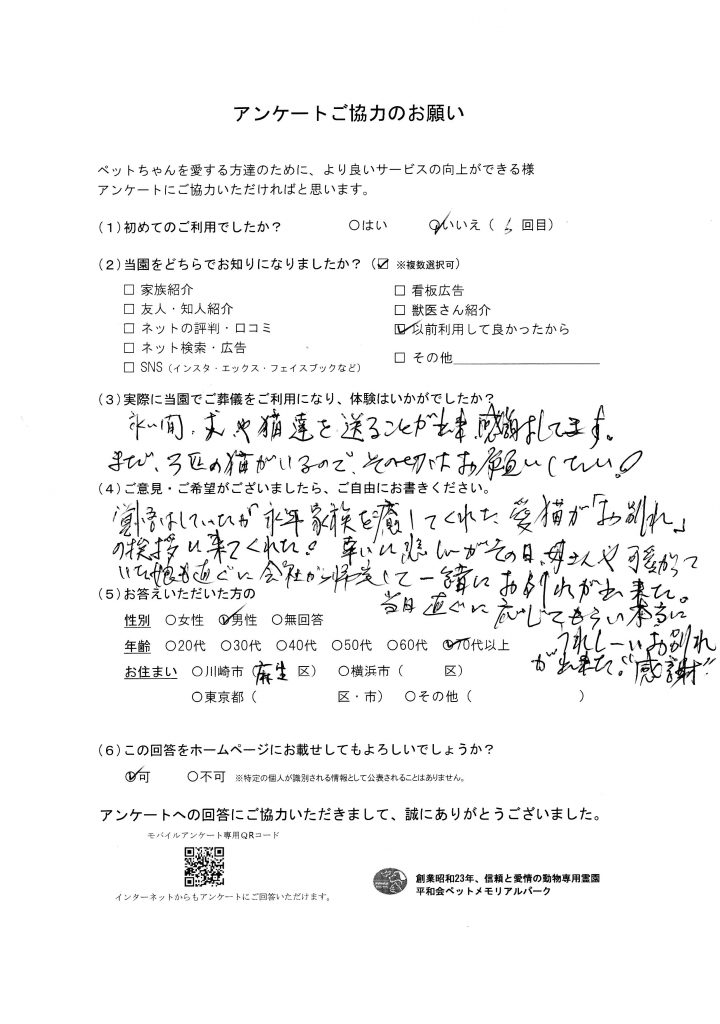 アンケートご協力のお願い
ペットちゃんを愛する方達のために、より良いサービスの向上ができる様
アンケートにご協力いただければと思います。
(1)初めてのご利用でしたか？ ○はい ○いいえ（ 回目）
(2)当園をどちらでお知りになりましたか？（☑ ※複数選択可）
□ 家族紹介 □ 看板広告
□ 友人・知人紹介 □ 獣医さん紹介
□ ネットの評判・口コミ ☑ 以前利用して良かったから
□ ネット検索・広告 □ その他
□ SNS（インスタ・エックス・フェイスブックなど）
(3)実際に当園でご葬儀をご利用になり、体験はいかがでしたか？
永い間、犬や猫達を送ることが出来感謝してます。
まだ、3匹の猫がいるので、その切はお願いしたい！
(4)ご意見・ご希望がございましたら、ご自由にお書きください。
覚悟はしていたが永年家族を癒してくれた愛猫が「お別れ」
の挨拶に来てくれた！幸いに悲しいがその日、母さんや可愛がって
いた娘も直ぐに会社から帰宅して一緒にお別れが出来た。
当日直ぐに応じてもらい本当に
うれしーいお別れ
が出来た。感謝!!
(5)お答えいただいた方の
性別 ○女性 ☑男性 ○無回答
年齢 ○20代 ○30代 ○40代 ○50代 ○60代 ☑70代以上
お住まい ○川崎市（麻生 区） ○横浜市（ 区）
○東京都（ 区・市） ○その他（ ）
(6)この回答をホームページにお載せしてもよろしいでしょうか？
☑可 ○不可 ※特定の個人が識別される情報として公表されることはありません。
アンケートへの回答にご協力いただきまして、誠にありがとうございました。
モバイルアンケート専用QRコード
インターネットからもアンケートにご回答いただけます。
創業昭和23年、信頼と愛情の動物専用霊園
平和会ペットメモリアルパーク